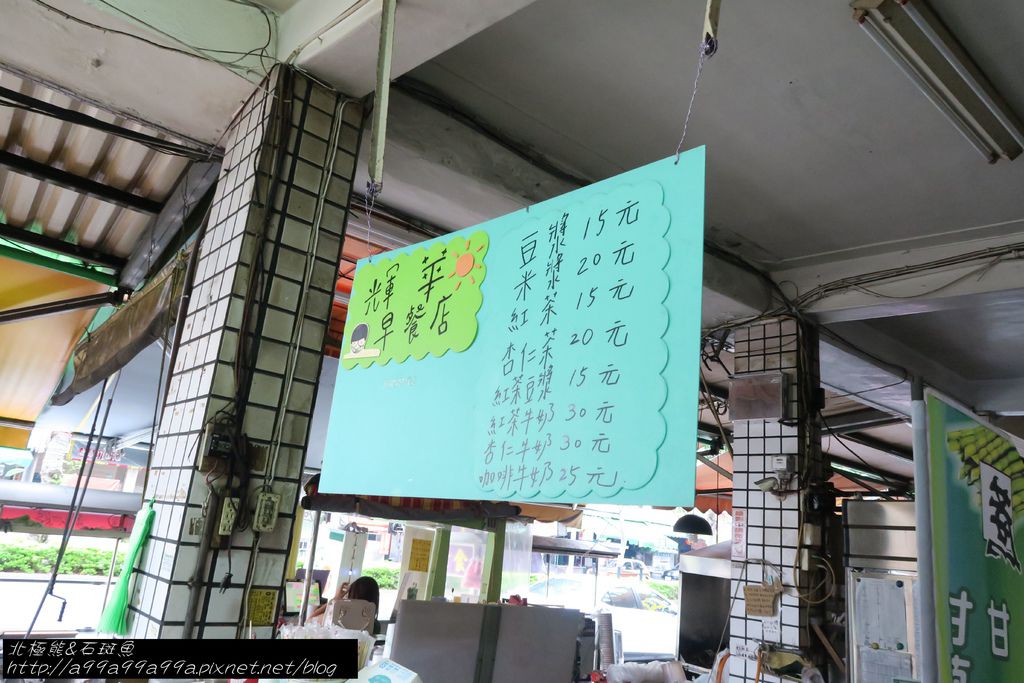 輝華
早餐店
豆漿 15元
米漿 20元
紅茶 15元
杏仁茶 20元
紅茶豆漿 15元
紅茶牛奶 30元
杏仁牛奶 30元
咖啡牛奶 25元
甘
甘
北極熊&石斑魚
http://a99a99a99a.pixnet.net/blog